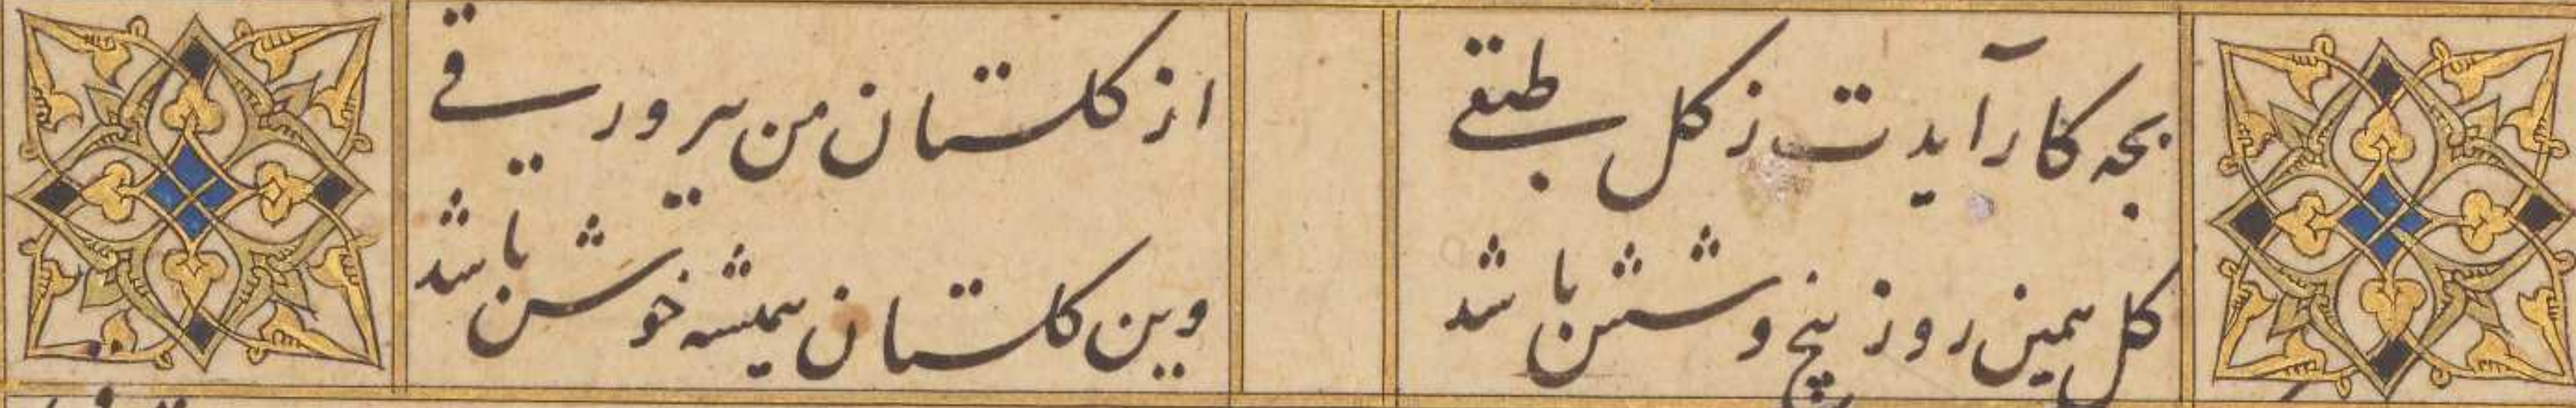 بچه کار آیدت ز کل طبقی
از کلستان من ببر ورقی
کل همین روز پنج و شش باشد
وین کلستان همیشه خوش باشد